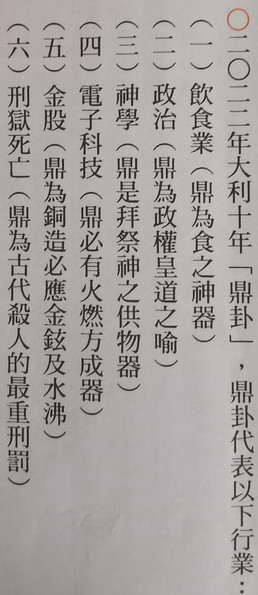 ○二○二二年大利十年「鼎卦」，鼎卦代表以下行業：
（一）飲食業（鼎為食之神器）
（二）政治（鼎為政權皇道之喻）
（三）神學（鼎是拜祭神之供物器）
（四）電子科技（鼎必有火燃方成器）
（五）金股（鼎為銅造必應金鉉及水沸）
（六）刑獄死亡（鼎為古代殺人的最重刑罰）